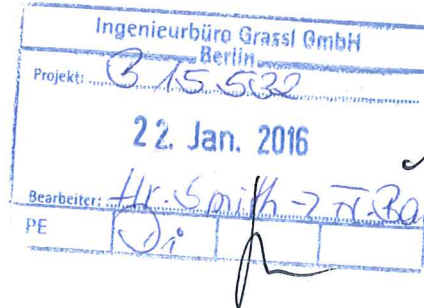 Ingenieurbüro Grassl GmbH
Berlin
Projekt: B 15.532
22. Jan. 2016
Bearbeiter: Hr. Smith
PE